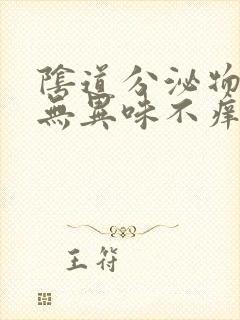 陰道分泌物
無異味不痒
王符